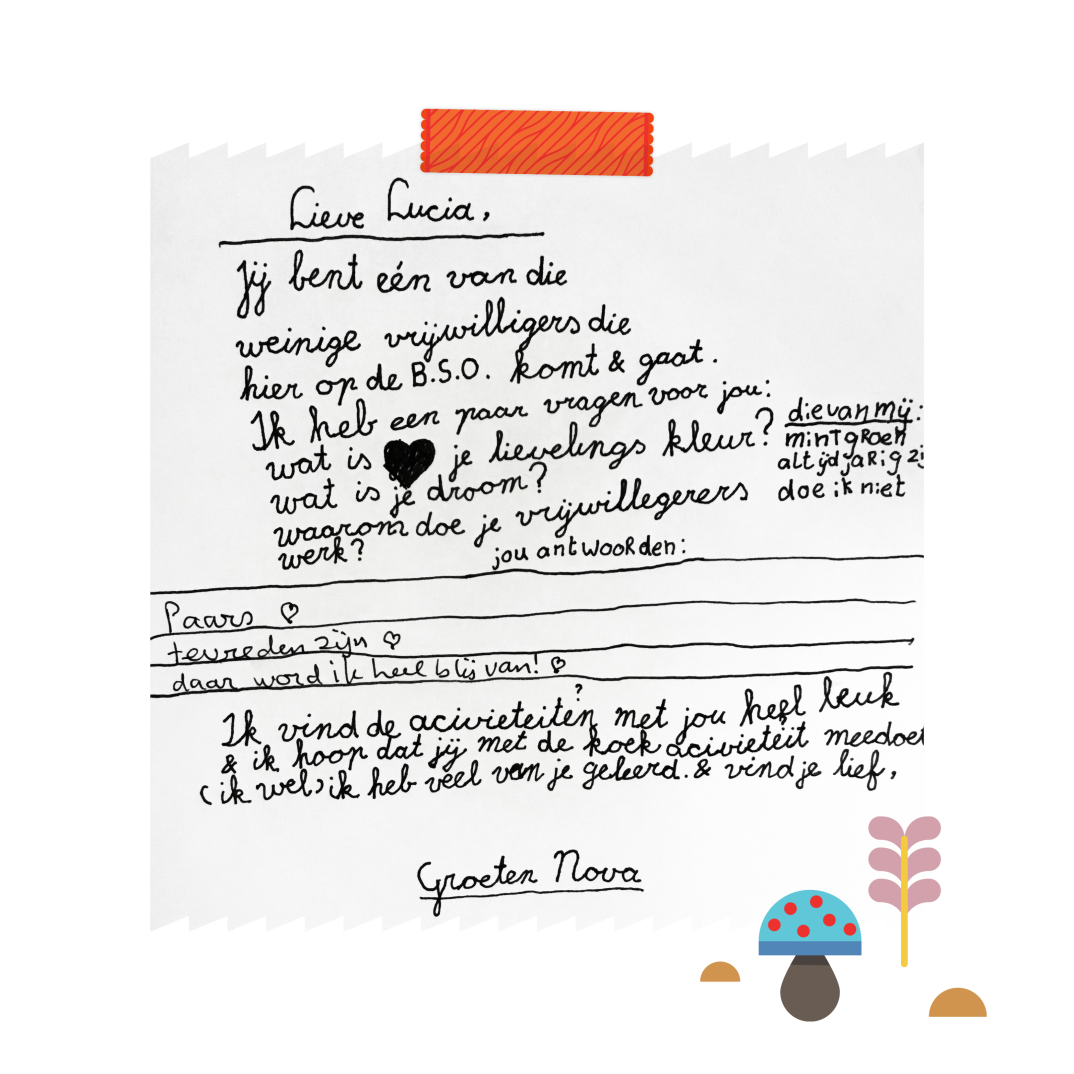 Lieve Lucia,
Jij bent eén van die
weinige vrijwilligers die
hier op de B.S.O. komt & gaat.
Ik heb een paar vragen voor jou:
wat is je lievelings kleur?
wat is je droom?
waarom doe je vrijwillegerers
werk?
die van mij:
mintgroen
altijd jarig zij
doe ik niet
jou antwoorden:
Paars ♡
tevreden zijn ♡
daar word ik heel blij van! ♡
?
Ik vind de acivieteiten met jou heel leuk
& ik hoop dat jij met de koek acivieteit meedoet
(ik wel) ik heb veel van je geleerd. & vind je lief,
Groeten Nova